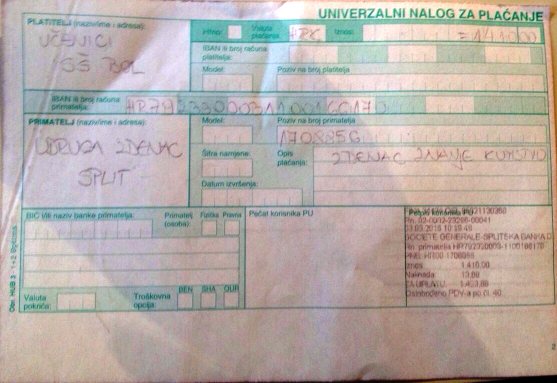 UNIVERZALNI NALOG ZA PLAĆANJE
PLATITELJ (naziv/ime i adresa):
UČENICI
SŠ BOL
Hitno:
Valuta plaćanja:
HRK
Iznos:
=141000
IBAN ili broj računa platitelja:
Model:
Poziv na broj platitelja
IBAN ili broj računa primatelja:
PRIMATELJ (naziv/ime i adresa):
UDRUGA ZDENAC
SPLIT
Model:
Poziv na broj primatelja
1708856
Šifra namjene:
Opis plaćanja:
ZDENAC ZNANJE KUMSTVO
Datum izvršenja:
BIC i/ili naziv banke primatelja:
Primatelj (osoba):
Fizička
Pravna
Pečat korisnika PU
Potpis korisnika PU
SOCIETE GENERALE-SPLITSKA BANKA D
Iznos: 1.410,00
Naknada
Oslobođeno PDV-a po čl. 40
Valuta pokrića:
Troškovna opcija:
BEN
SHA
OUR
Obr. HUB 3
2